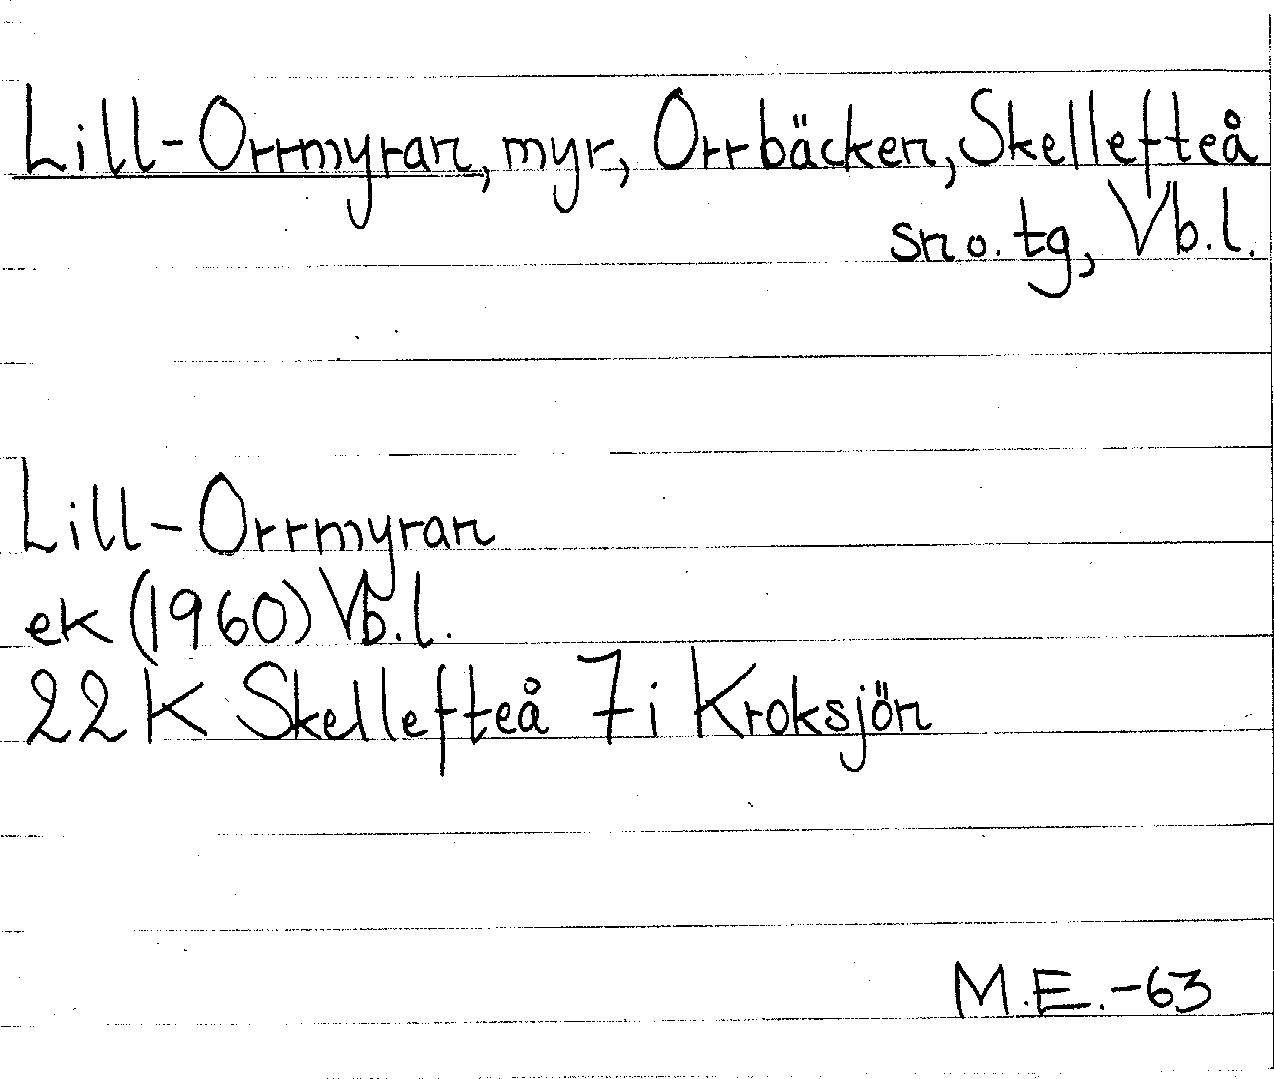 Lill-Orrmyran, myr, Orrbäcken, Skellefteå
sn o. tg, Vb.l.
Lill-Orrmyran
ek (1960) Vb.l.
22 K Skellefteå 7i Kroksjön
M.E.-63